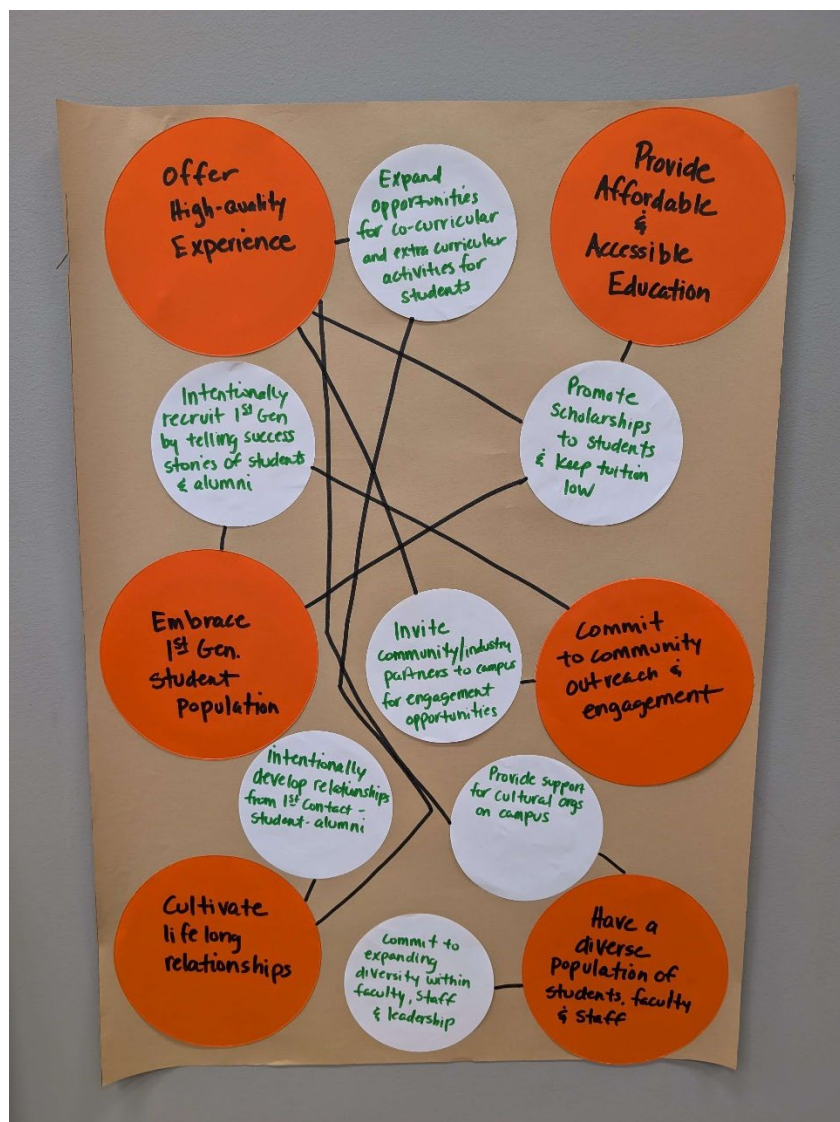 Offer
High-Quality
Experience
Expand
opportunities
for co-curricular
and extra curricular
activities for
students
Provide
Affordable
&
Accessible
Education
Intentionally
recruit 1st Gen
by telling success
stories of students
& alumni
Promote
Scholarships
to students
& keep tuition
low
Embrace
1st Gen.
student
population
Invite
community/industry
partners to campus
for engagement
opportunities
Commit
to community
outreach &
engagement
Intentionally
develop relationships
from 1st contact-
student-alumni
Provide support
for cultural orgs
on campus
Cultivate
lifelong
relationships
Commit to
expanding
diversity within
faculty, staff
& leadership
Have a
diverse
population of
students, faculty
& Staff